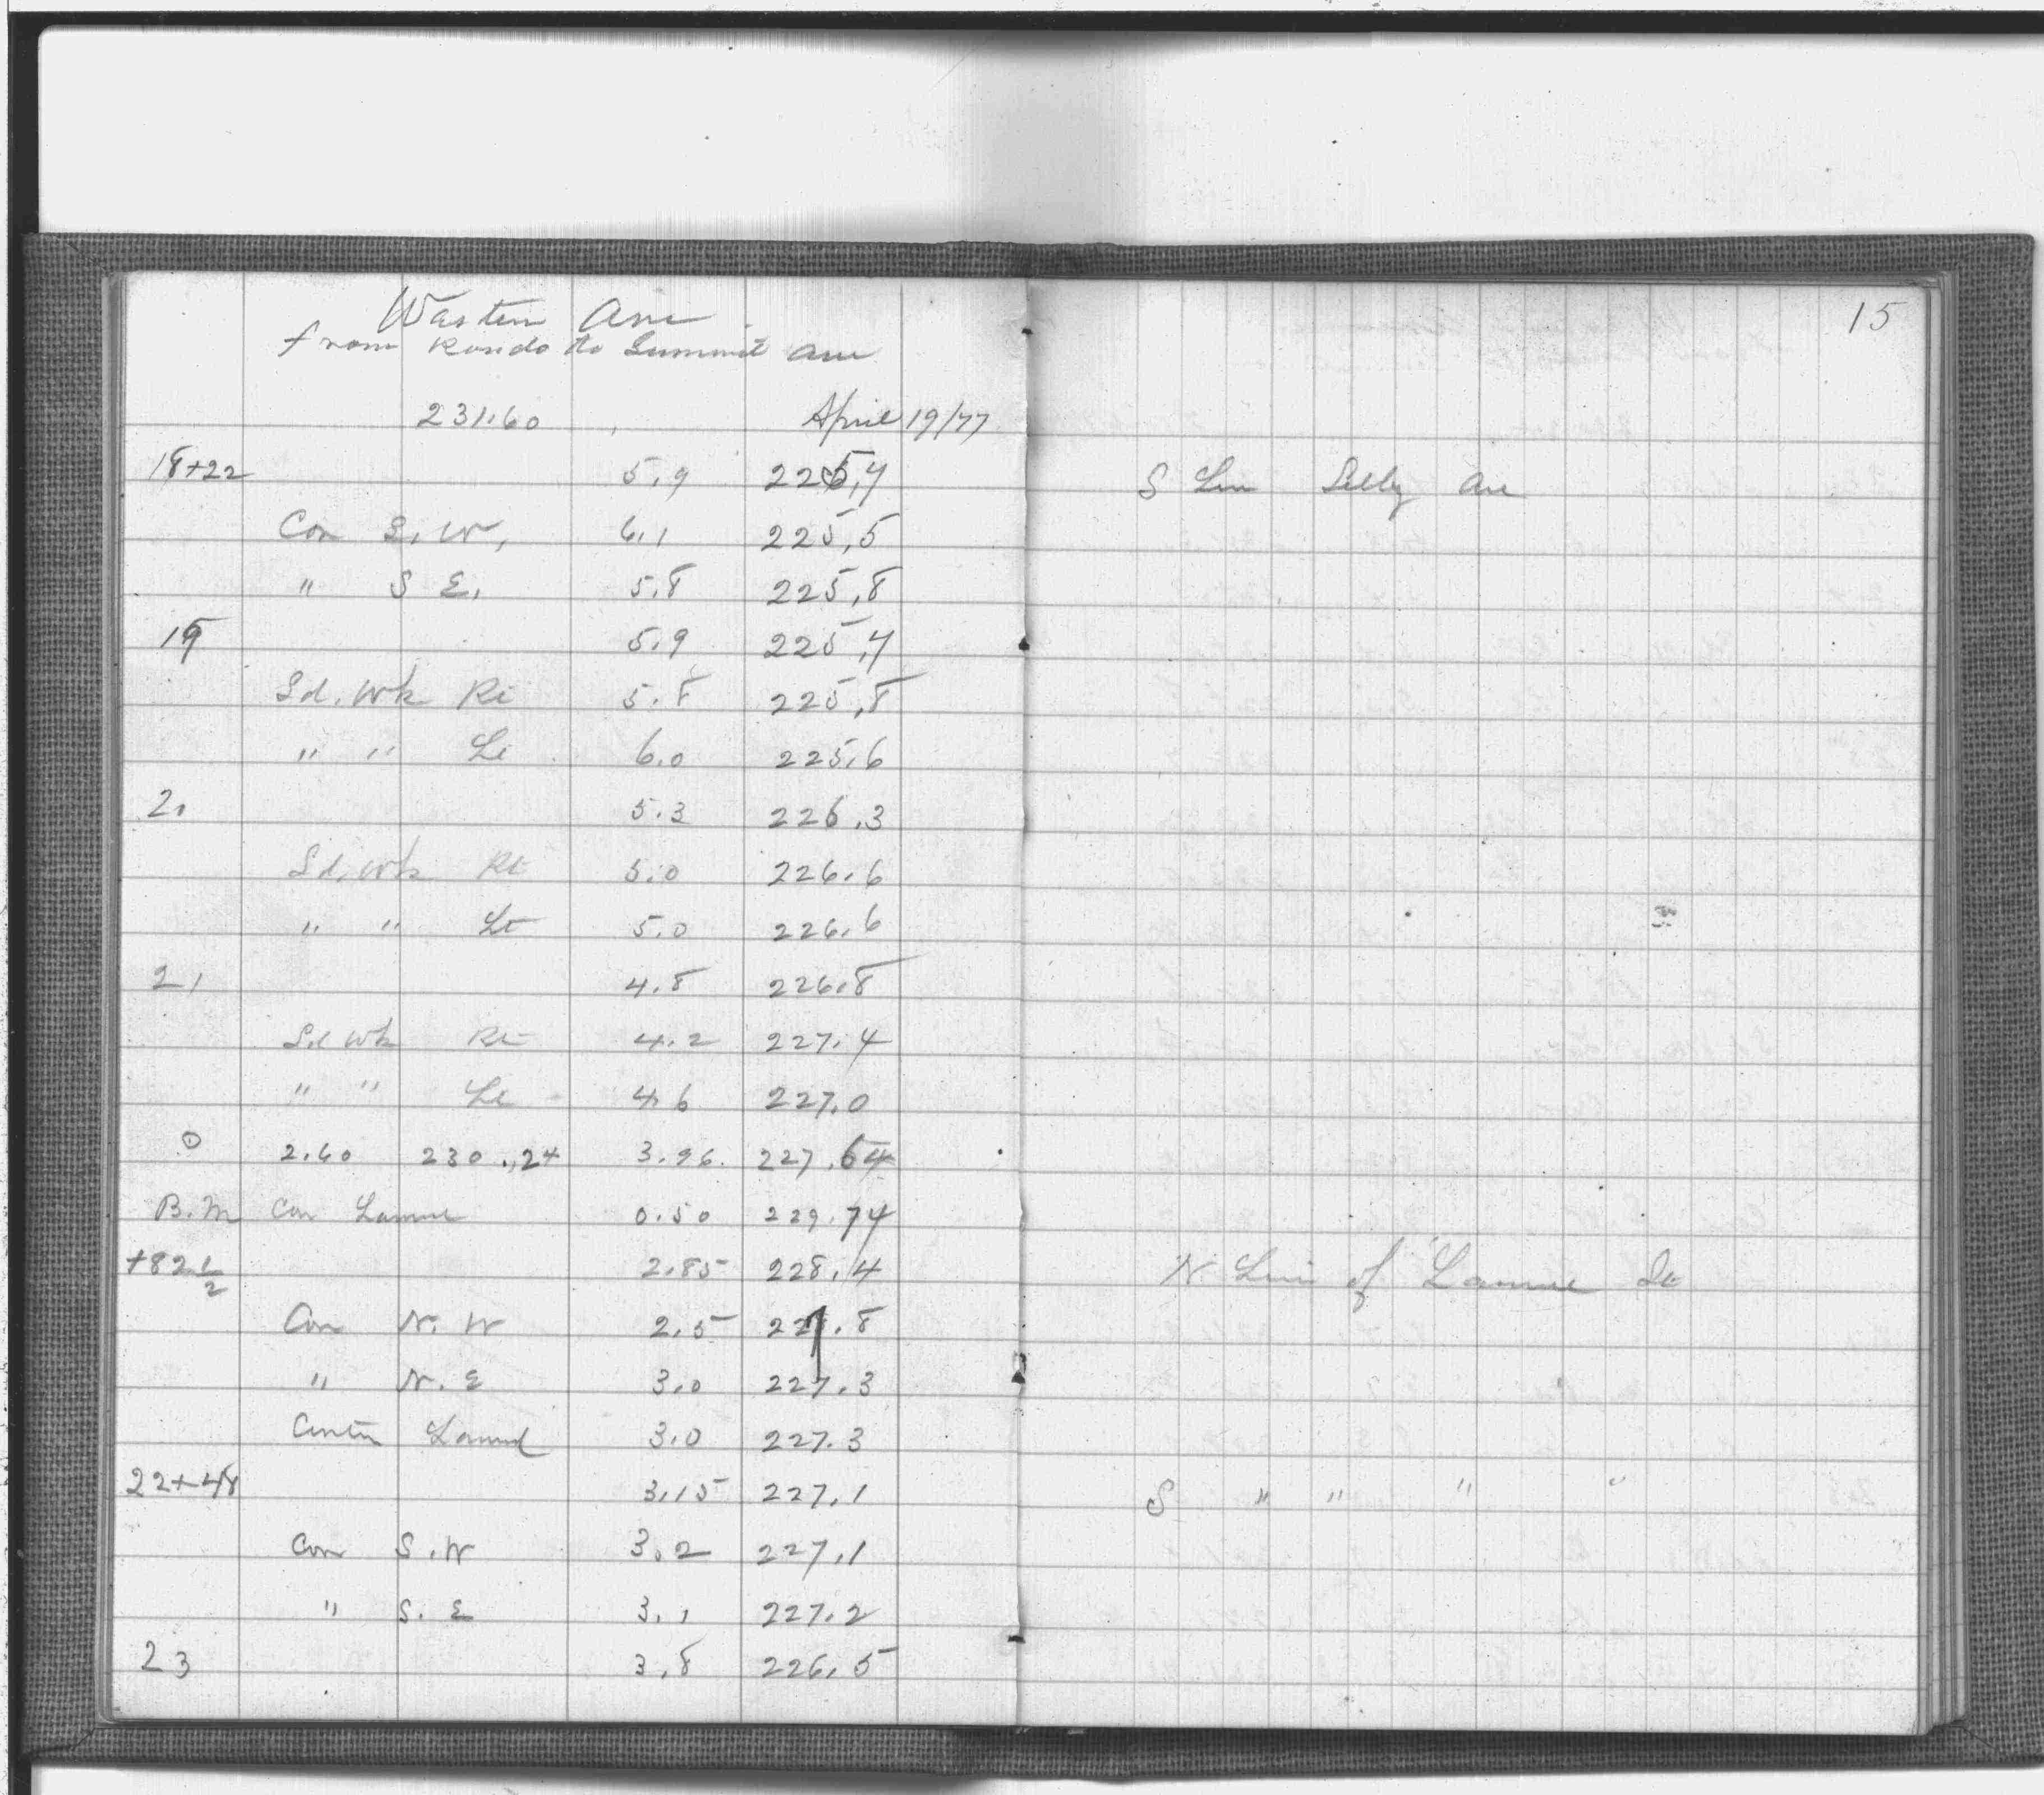 15
Western Ave
from Rondo to Summit ave
231.60 April 19/77
18+22 5.9 225,7 S Lin Selby ave
Cor S. W, 6.1 225,5
" S E, 5.8 225,8
19 5.9 225,7
Sd. Wk Rt 5.8 225,8
" " Lt 6.0 225,6
20 5.3 226.3
Sd. Wk Rt 5.0 226.6
" " Lt 5.0 226.6
21 4.8 226.8
Sd Wk Rt 4.2 227.4
" " Lt 4.6 227.0
0 2.60 230.24 3.96 227.64
B.M Cor Laurel 0.50 229.74
+82 1/2 2.85 228.4 N Lin of Laurel St
Cor N. W 2.5 227.8
" N. E 3.0 227.3
Center Laurel 3.0 227.3
22+48 3.15 227.1 S " " " "
Cor S. W 3.2 227.1
" S. E 3.1 227.2
23 3.8 226.5